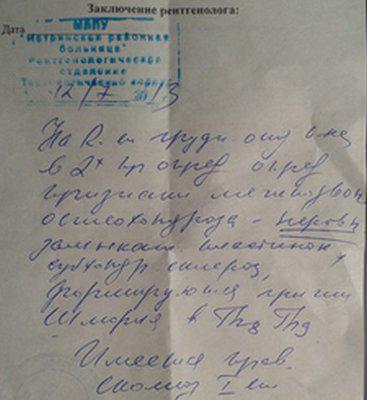 Заключение рентгенолога:
Дата
МЛПУ
"Истринская районная
больница"
Рентгенологическое
отделение
Терапевтический корпус
12/7 13
На R. гр груди
в 2х пр опред
признаки межпозвон
остеохондроза - неровн
замыкат. пластинок,
субхондр. склероз,
формирующиеся грыжи
Шморля в Th8 Th9
Имеется прав.
сколиоз I ст